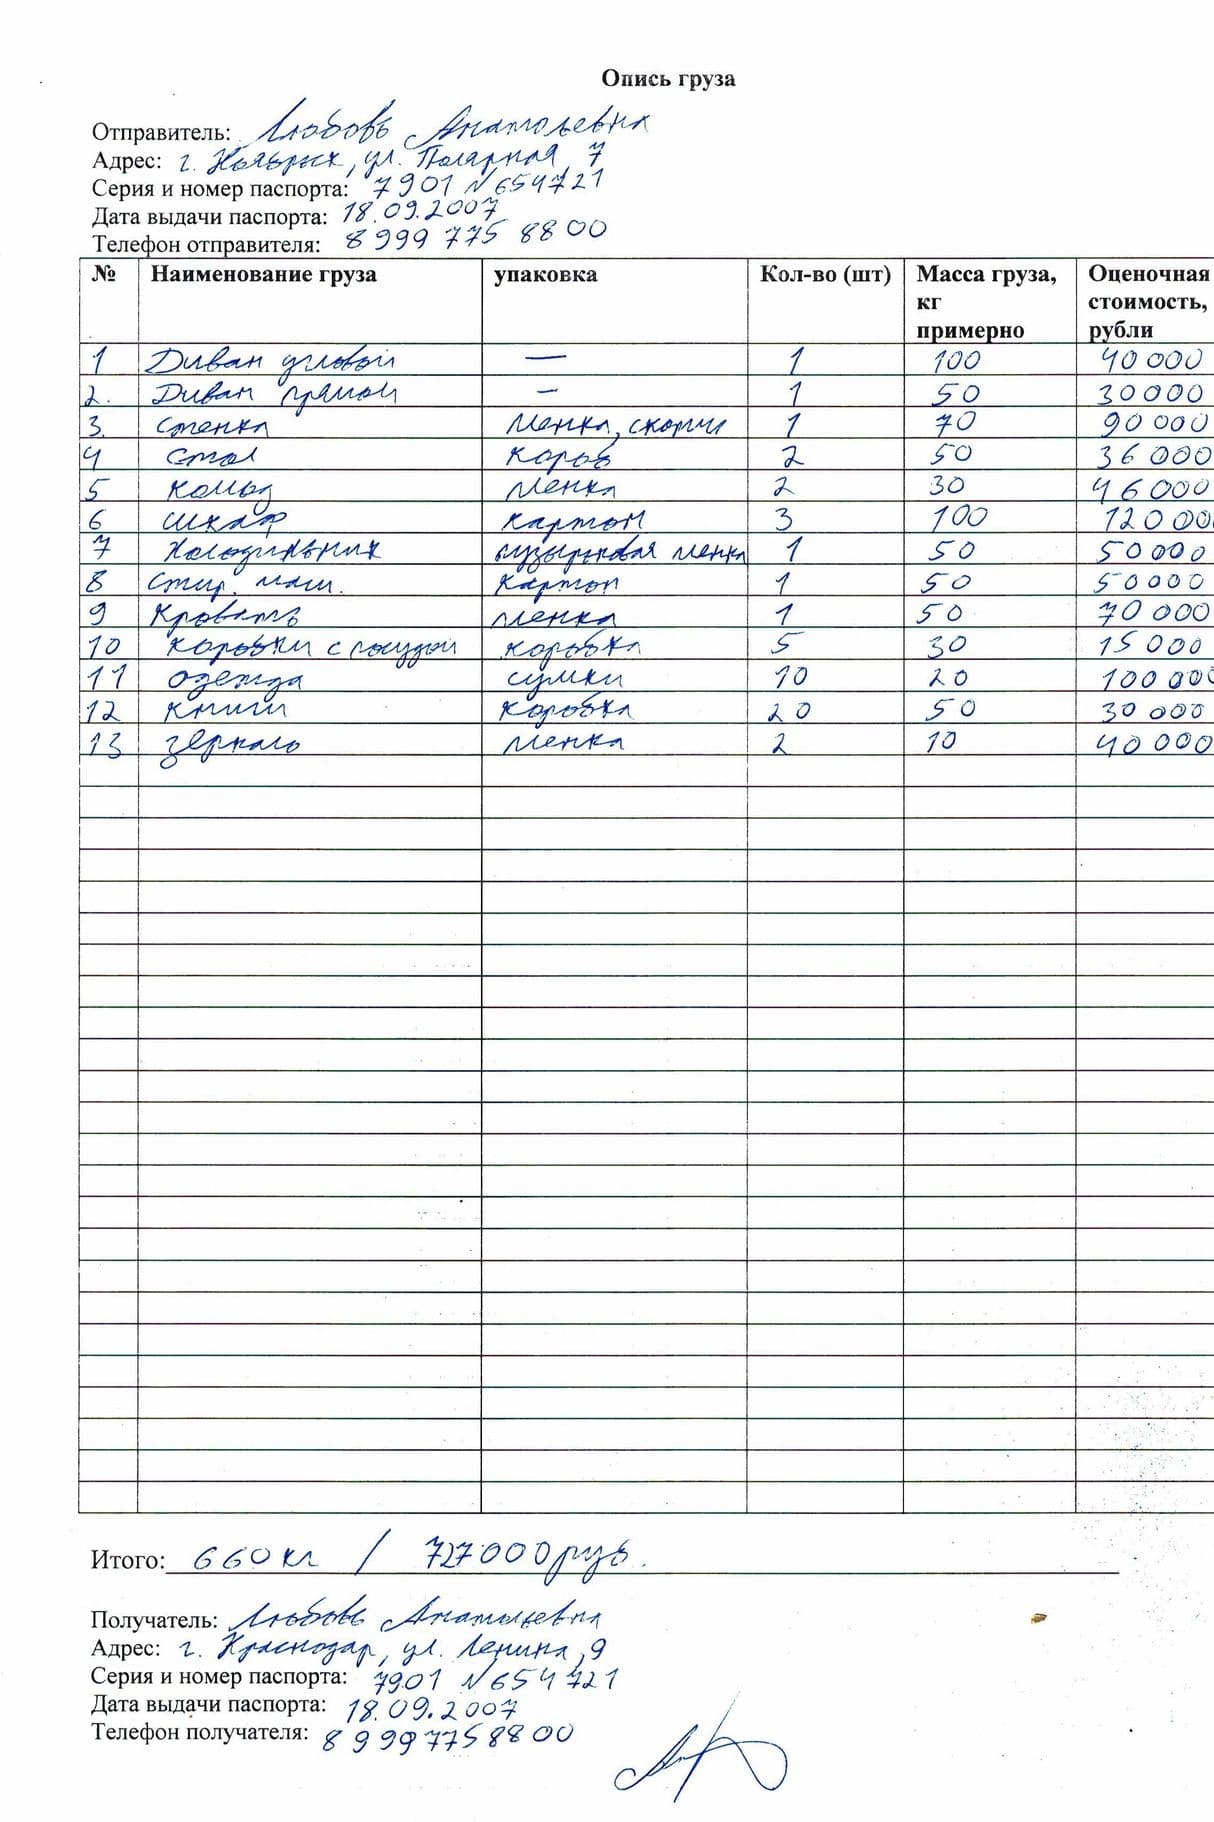 Опись груза
Отправитель: Любовь Анатольевна
Адрес: г. Ноябрьск, ул. Полярная, 7
Серия и номер паспорта: 7901 N654721
Дата выдачи паспорта: 18.09.2007
Телефон отправителя: 8 999 775 8800
№ Наименование груза упаковка Кол-во (шт) Масса груза, кг примерно Оценочная стоимость, рубли
1 Диван угловой — 1 100 40 000
2. Диван прямой — 1 50 30000
3. стенка пленка, скотч 1 70 90 000
4 стол короб 2 50 36 000
5 комод пленка 2 30 46 000
6 шкаф картон 3 100 120 000
7 Холодильник пузырьковая пленка 1 50 50000
8 Стир. маш. картон 1 50 50000
9 Кровать пленка 1 50 70 000
10 коробки с посудой коробка 5 30 15 000
11 одежда сумки 10 20 100 000
12 книги коробка 20 50 30 000
13 зеркало пленка 2 10 40 000
Итого: 660 кг / 727000 руб.
Получатель: Любовь Анатольевна
Адрес: г. Краснодар, ул. Ленина, 9
Серия и номер паспорта: 7901 N654721
Дата выдачи паспорта: 18.09.2007
Телефон получателя: 8 999 775 88 00